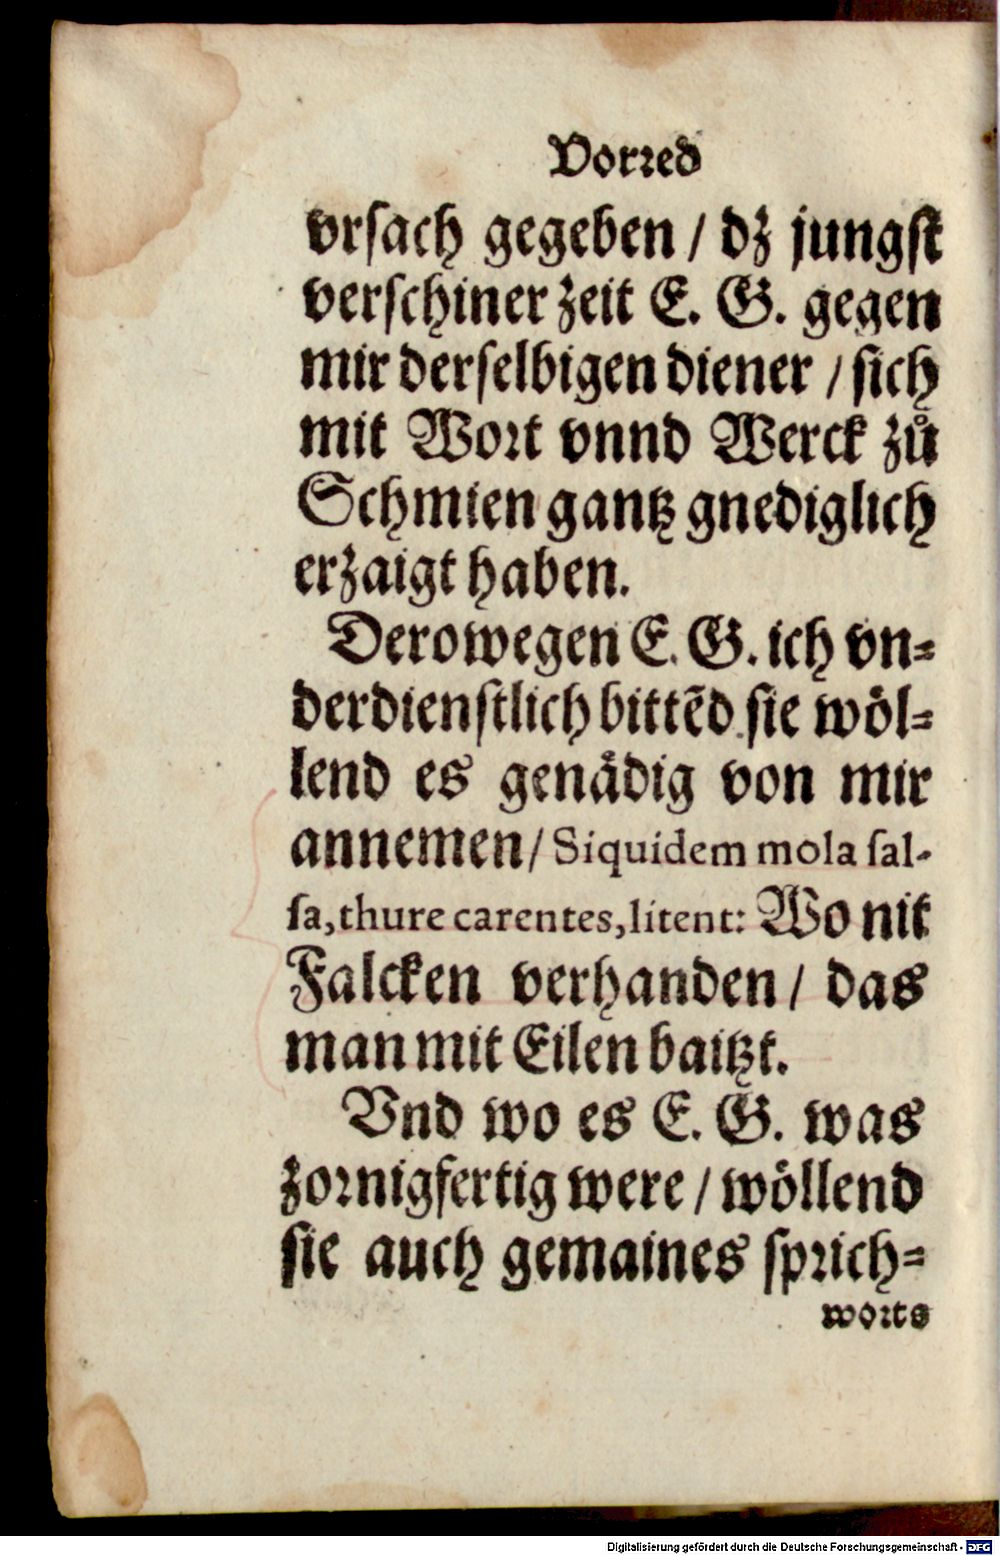 Vorred
vrſach gegeben / dz jungſt
verſchiner zeit E. G. gegen
mir derſelbigen diener / ſich
mit Wort vnnd Werck zuͦ
Schmien gantz gnediglich
erzaigt haben.
Derowegen E. G. ich vn⸗
derdienſtlich bittẽd ſie woͤl⸗
lend es genaͤdig von mir
annemen / Siquidem mola ſal-
ſa, thure carentes, litent: Wo nit
Falcken verhanden / das
man mit Eilen baitzt.
Vnd wo es E. G. was
zornigfertig were / woͤllend
ſie auch gemaines ſprich⸗
worts
Digitalisierung gefördert durch die Deutsche Forschungsgemeinschaft - DFG